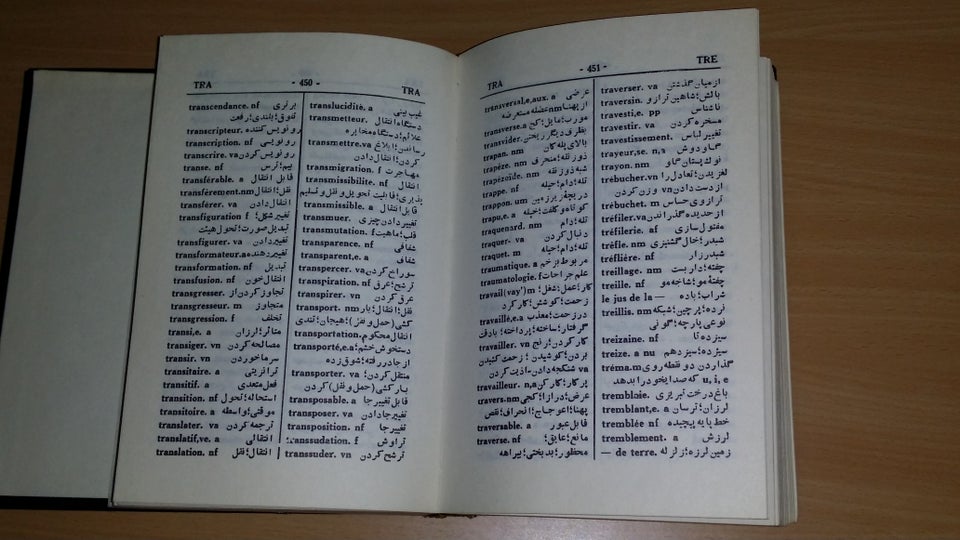 TRA - 450 - TRA
transcendance. nf برتری
تفوق؛ بلندی؛ رفعت
transcripteur. رونویس کننده
transcription. nf رونویسی
transcrire. va رونویس کردن
transe. nf بیم؛ ترس
transférable. a قابل انتقال
transfèrement. nm نقل؛ انتقال
transférer. va انتقال دادن
transfiguration f تغییر شکل؛
تبدیل صورت؛ تحول هیئت
transfigurer. va تغییر دادن
transformateur. a تغییر دهنده
transformation. nf تبدیل
transfusion. nf خون
transgresser. تجاوز کردن از
transgresseur. m متجاوز
transgression. f تخلف
transi,e. a متأثر؛ لرزان
transiger. vn مصالحه کردن
transir. vn سرما خوردن
transitaire. a ترانزیتی
transitif. a فعل متعدی
transition. nf استحاله؛ تحول
transitoire. a موقتی؛ واسطه
translater. va ترجمه کردن
translatif,ve. a انتقالی
translation. nf انتقال؛ نقل
translucidité. a غیب بینی
transmetteur. دستگاه انتقال
علائم؛ دستگاه مخابره
transmettre. va رساندن؛ ابلاغ
کردن؛ انتقال دادن
transmigration. f مهاجرت
transmissibilité. nf انتقال
پذیری؛ قابلیت تحویل و نقل و تسلیم
transmissible. a قابل انتقال
transmuer. تغییر دادن چیزی
transmutation. f قلب؛ ماهیت
transparence. nf شفافی
transparent,e. a شفاف
transpercer. va سوراخ کردن
transpiration. nf ترشح؛ عرق
transpirer. vn عرق کردن
transport. nm نقل؛ انتقال؛ بار
کشی (حمل و نقل)؛ هیجان؛ تندی
transportation. انتقال محکوم
transporté,e. a دستخوش خشم؛
از جا در رفته؛ شوق زده
transporter. va منتقل کردن؛
بارکشی (حمل و نقل) کردن
transposable. a قابل تغییر جا
transposer. va تغییر جا دادن
transposition. nf تغییر جا
transsudation. f تراوش
transsuder. vn ترشح کردن
TRA - 451 - TRE
transversal,e,aux. a عرضی
از پهنا nm عضله معترضه
transverse. a مورب؛ مایل؛ کج
transvider. بظرف دیگر ریختن
trapan. nm بالای پله کان
trapèze. nm ذوزنقه؛ منحرف
trapézoïde. nm شبه ذوزنقه
trappe. nf تله؛ دام؛ حیله
trappon. nm در بچه زیرزمین
trapu,e. a کوتاه و کلفت؛ خپله
traquenard. nm تله؛ دام
traquer. va دنبال کردن
traquet. m تله؛ دام؛ حیله
traumatique. a مربوط بزخم
traumatologie. f علم جراحات
travail(vay') m کار؛ عمل؛ شغل؛
زحمت؛ کوشش؛ کار کرد
travaillé,e. a در زحمت؛ معذب
گرفتار؛ ساخته؛ پرداخته؛ با دقت
travailler. vn کار کردن؛ رنج
بردن؛ کوشیدن؛ زحمت کشیدن
va شکنجه دادن - اذیت کردن
travailleur. n,a پر کار؛ کار کن
travers. nm عرض؛ درازا؛ کجی
پهنا؛ اعوجاج؛ انحراف؛ نقص
traversable. a قابل عبور
traverse. nf مانع؛ عایق؛
محظور؛ بدبختی؛ بیراهه
traverser. va از میان گذشتن
traversin. بالش؛ شاهین ترازو
travesti,e. pp ناشناس
travestir. va مسخره کردن
travestissement. تغییر لباس
trayeur,se. n,a گاو دوش
trayon. nm نوک پستان گاو
trébucher. vn لغزیدن؛ تعادل را
از دست دادن vn وزن کردن
trébuchet. m ترازوی حساس
tréfiler. va از حدیده گذراندن
tréfilerie. nf مفتول سازی
trèfle. nm شبدر؛ خال گشنیزی
tréflière. nf شبدر زار
treillage. nm چفته؛ داربست
treille. nf چفته مو؛ شاخه مو
le jus de la — شراب؛ باده
treillis. nm نرده؛ پرچین؛ شبکه
نوعی پارچه؛ گونی
treizaine. nf سیزده تا
treize. a nu سیزده؛ سیزدهم
tréma. m گذاردن دو نقطه روی
u, i, e که صدای خود را بدهد
tremblaie. باغ درخت تبریزی
tremblant,e. a لرزان؛ ترسان
tremblée nf خط پایه پیچیده
tremblement. a لرزش
— de terre. زمین لرزه؛ زلزله